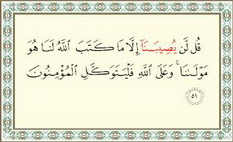 قُل لَّن يُصِيبَنَآ إِلَّا مَا كَتَبَ ٱللَّهُ لَنَا هُوَ
مَوْلَىٰنَا ۚ وَعَلَى ٱللَّهِ فَلْيَتَوَكَّلِ ٱلْمُؤْمِنُونَ
٥١